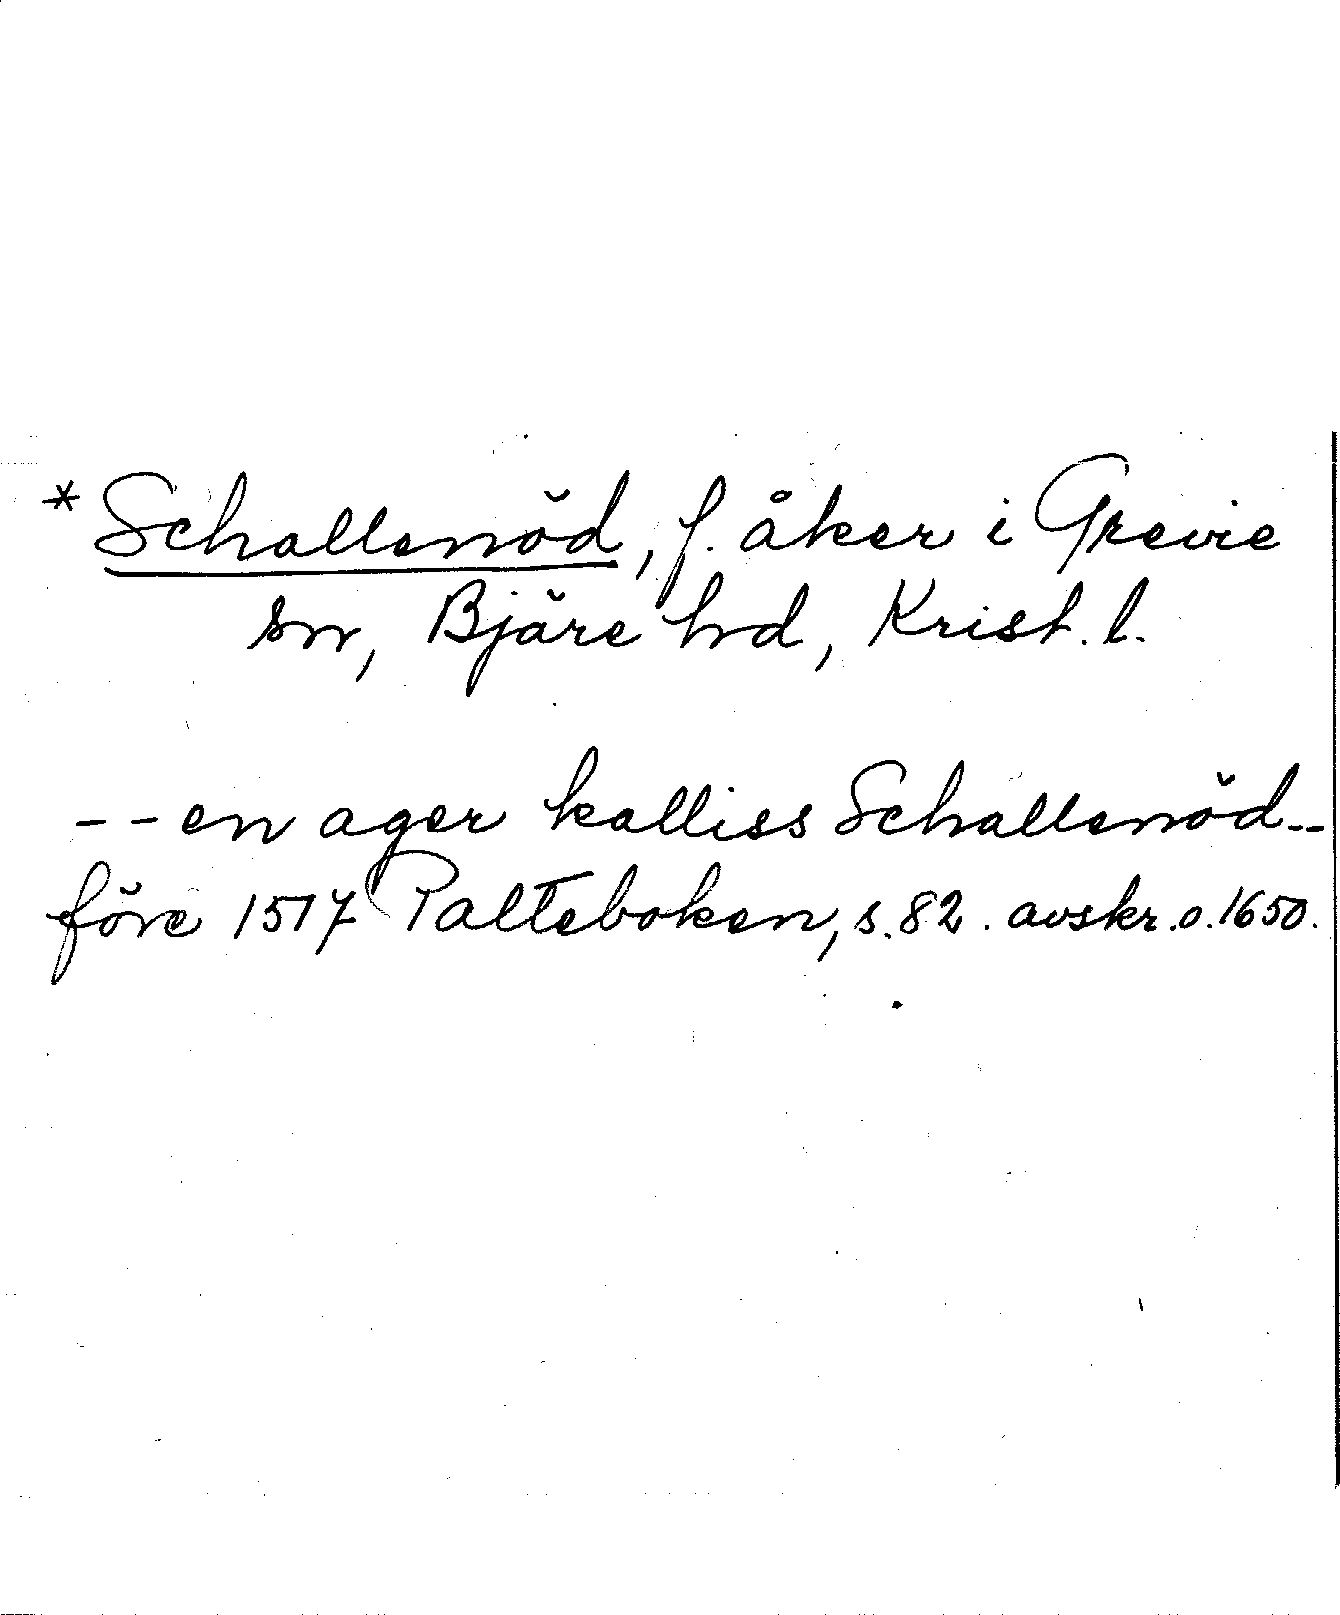 *Schallenöd, f. åker i Grevie
sn, Bjäre hd, Krist. l.
-- en ager kalliss Schallenöd --
före 1517 Palteboken, s. 82. avskr. o. 1650.